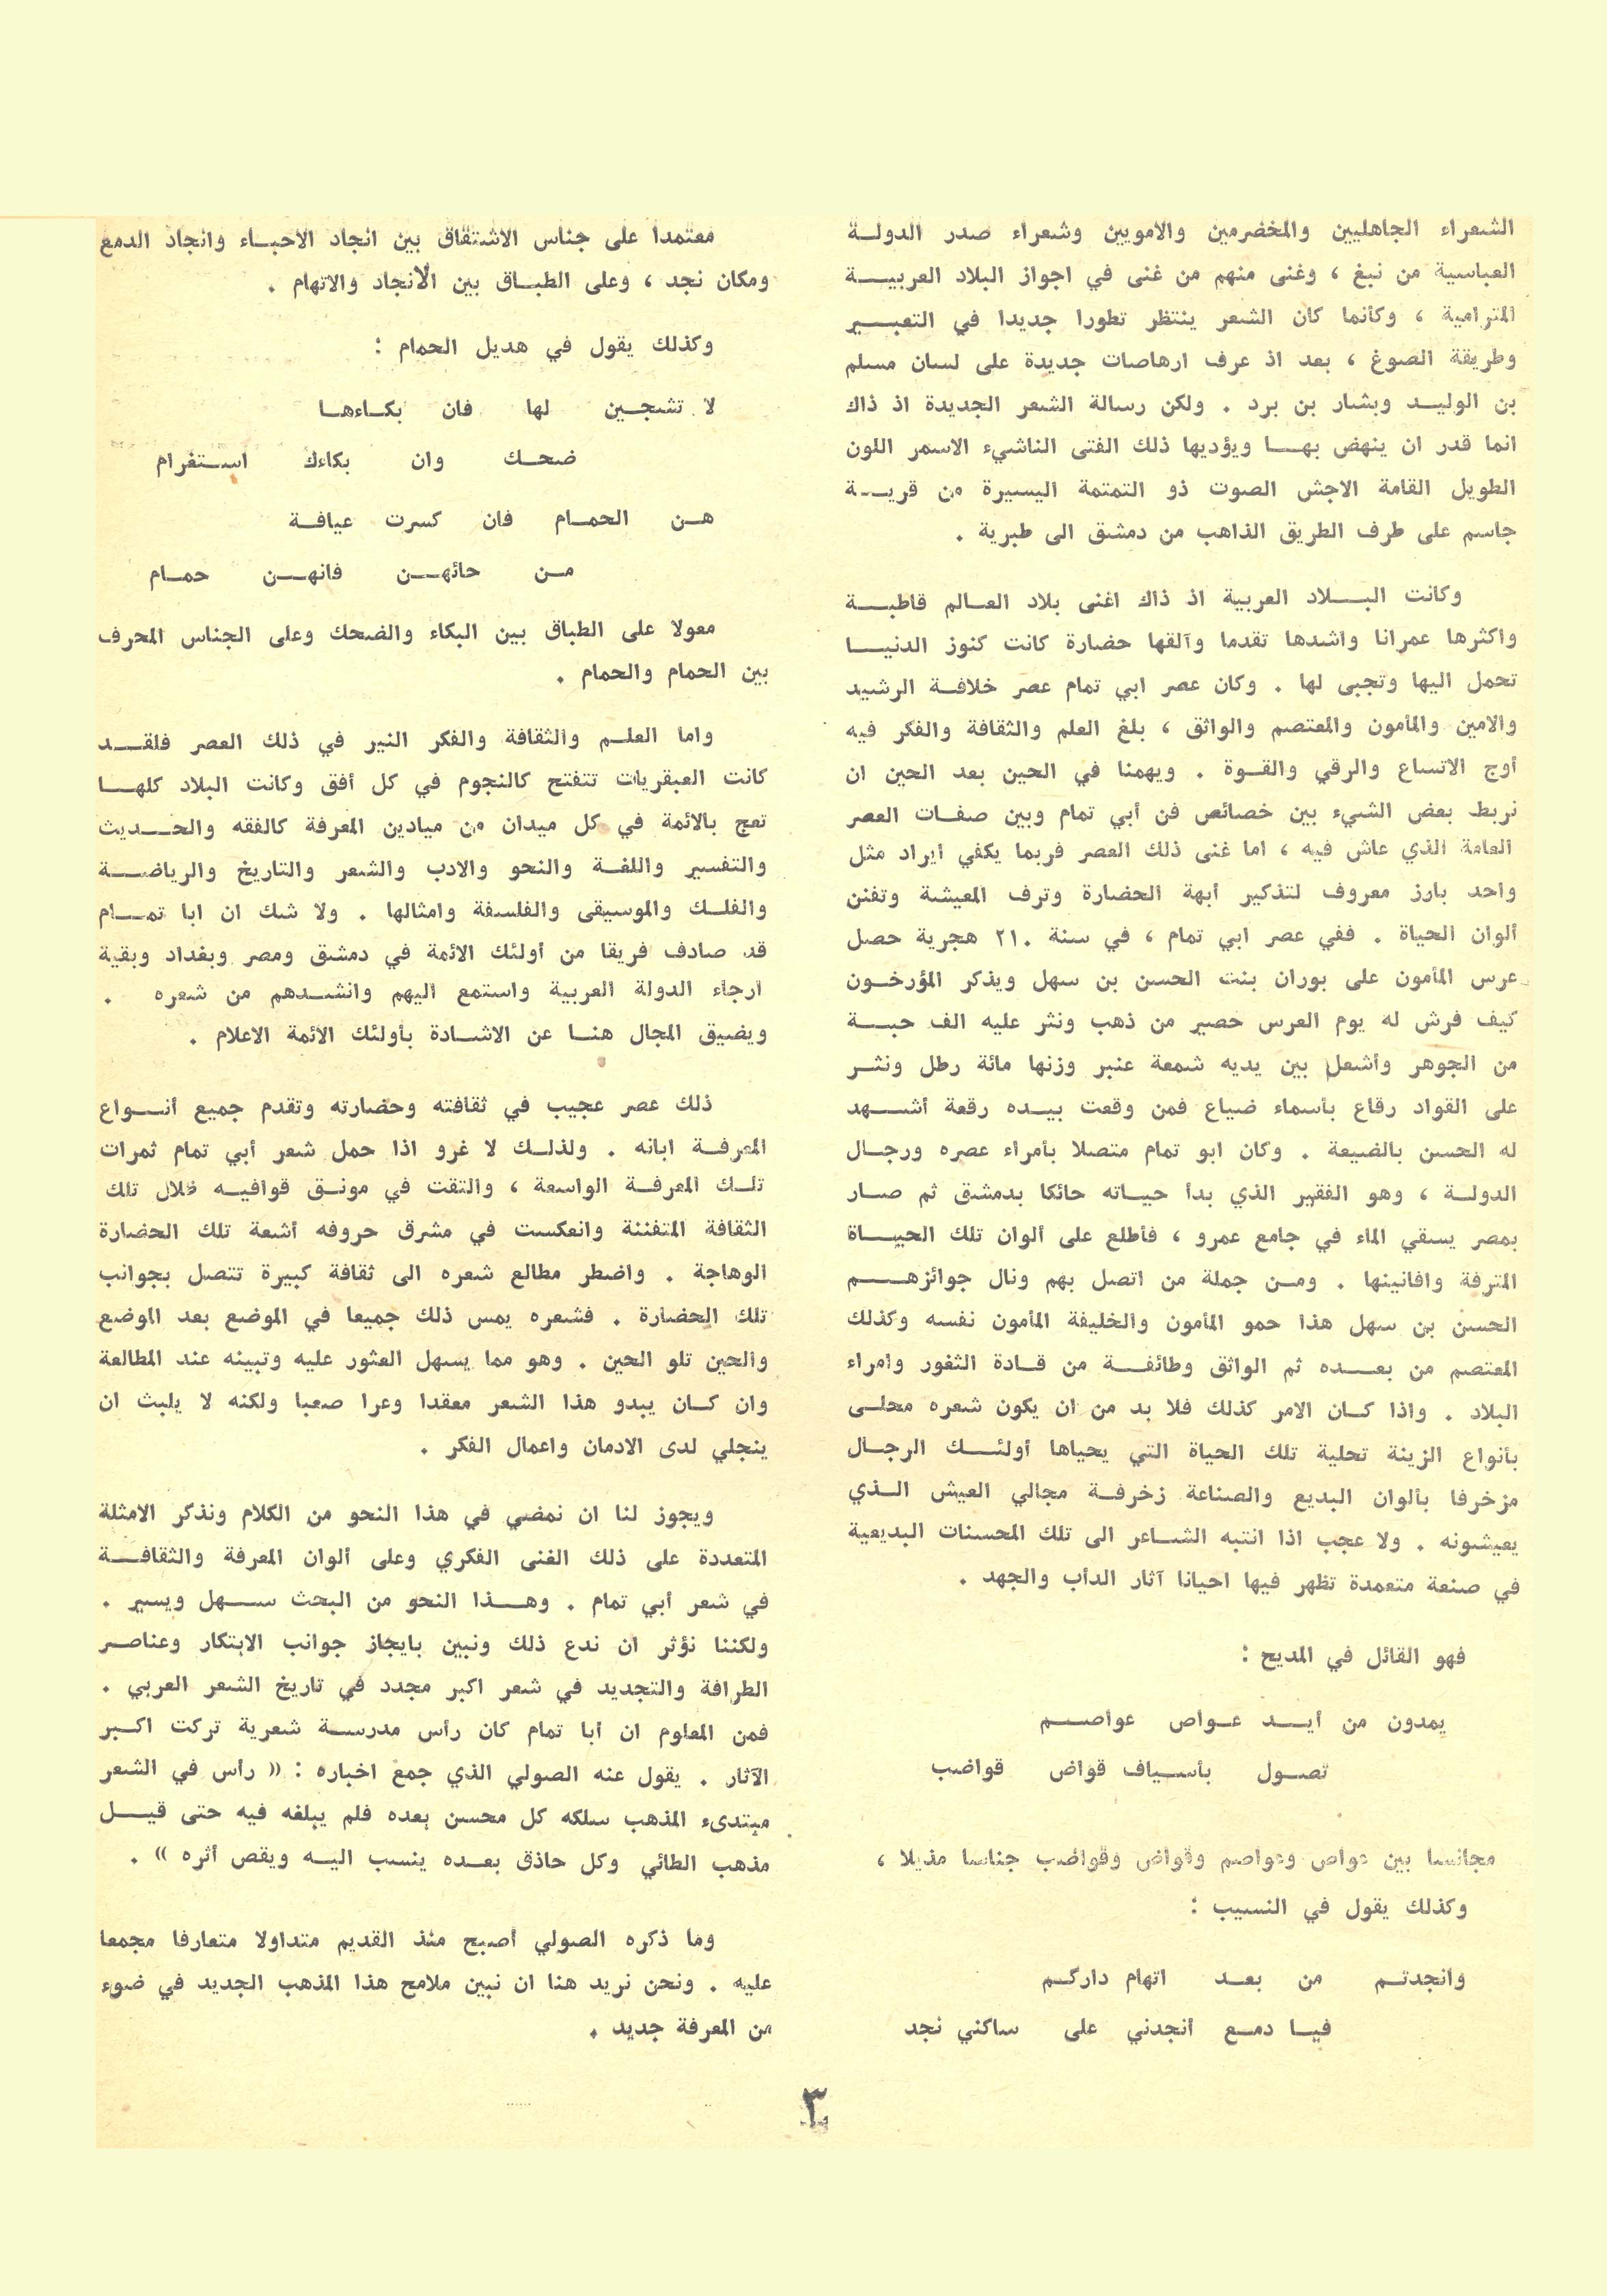 الشعراء الجاهليين والمخضرمين والامويين وشعراء صدر الدولة
العباسية من نبغ ، وغنى منهم من غنى في اجواز البلاد العربية
المترامية ، وكأنما كان الشعر ينتظر تطورا جديدا في التعبير
وطريقة الصوغ ، بعد اذ عرف ارهاصات جديدة على لسان مسلم
بن الوليد وبشار بن برد . ولكن رسالة الشعر الجديدة اذ ذاك
انما قدر ان ينهض بها ويؤديها ذلك الفتى الناشيء الاسمر اللون
الطويل القامة الاجش الصوت ذو التمتمة اليسيرة من قرية
جاسم على طرف الطريق الذاهب من دمشق الى طبرية .
وكانت البلاد العربية اذ ذاك اغنى بلاد العالم قاطبة
واكثرها عمرانا واشدها تقدما وآلقها حضارة كانت كنوز الدنيا
تحمل اليها وتجبى لها . وكان عصر ابي تمام عصر خلافة الرشيد
والامين والمأمون والمعتصم والواثق ، بلغ العلم والثقافة والفكر فيه
أوج الاتساع والرقي والقوة . ويهمنا في الحين بعد الحين ان
نربط بعض الشيء بين خصائص فن أبي تمام وبين صفات العصر
العامة الذي عاش فيه ، اما غنى ذلك العصر فربما يكفي ايراد مثل
واحد بارز معروف لتذكير أبهة الحضارة وترف المعيشة وتفنن
ألوان الحياة . ففي عصر ابي تمام ، في سنة ٢١٠ هجرية حصل
عرس المأمون على بوران بنت الحسن بن سهل ويذكر المؤرخون
كيف فرش له يوم العرس حصير من ذهب ونثر عليه الف حبة
من الجوهر وأشعل بين يديه شمعة عنبر وزنها مائة رطل ونثر
على القواد رقاع بأسماء ضياع فمن وقعت بيده رقعة أشهد
له الحسن بالضيعة . وكان ابو تمام متصلا بأمراء عصره ورجال
الدولة ، وهو الفقير الذي بدأ حياته حائكا بدمشق ثم صار
بمصر يسقي الماء في جامع عمرو ، فأطلع على ألوان تلك الحياة
المترفة وافانينها . ومن جملة من اتصل بهم ونال جوائزهم
الحسن بن سهل هذا حمو المأمون والخليفة المأمون نفسه وكذلك
المعتصم من بعده ثم الواثق وطائفة من قادة الثغور وامراء
البلاد . واذا كان الامر كذلك فلا بد من ان يكون شعره محلى
بأنواع الزينة تحلية تلك الحياة التي يحياها أولئك الرجال
مزخرفا بألوان البديع والصناعة زخرفة مجالي العيش الذي
يعيشونه . ولا عجب اذا انتبه الشاعر الى تلك المحسنات البديعية
في صنعة متعمدة تظهر فيها احيانا آثار الدأب والجهد .
فهو القائل في المديح :
يمدون من أيد عواص عواصم
تصول بأسياف قواض قواضب
مجانسا بين عواص وعواصم وقواض وقواضب جناسا مذيلا ،
وكذلك يقول في النسيب :
وانجدتم من بعد اتهام داركم
فيا دمع أنجدني على ساكني نجد
معتمدا على جناس الاشتقاق بين انجاد الاحباء وانجاد الدمع
ومكان نجد ، وعلى الطباق بين الانجاد والاتهام .
وكذلك يقول في هديل الحمام :
لا تشجين لها فان بكاءها
ضحك وان بكاءك استغرام
هن الحمام فان كسرت عيافة
من حائهن فانهن حمام
معولا على الطباق بين البكاء والضحك وعلى الجناس المحرف
بين الحمام والحمام .
واما العلم والثقافة والفكر النير في ذلك العصر فلقد
كانت العبقريات تتفتح كالنجوم في كل أفق وكانت البلاد كلها
تعج بالائمة في كل ميدان من ميادين المعرفة كالفقه والحديث
والتفسير واللغة والنحو والادب والشعر والتاريخ والرياضة
والفلك والموسيقى والفلسفة وامثالها . ولا شك ان ابا تمام
قد صادف فريقا من أولئك الائمة في دمشق ومصر وبغداد وبقية
ارجاء الدولة العربية واستمع اليهم وانشدهم من شعره .
ويضيق المجال هنا عن الاشادة بأولئك الائمة الاعلام .
ذلك عصر عجيب في ثقافته وحضارته وتقدم جميع أنواع
المعرفة ابانه . ولذلك لا غرو اذا حمل شعر أبي تمام ثمرات
تلك المعرفة الواسعة ، والتقت في مونق قوافيه ظلال تلك
الثقافة المتفننة وانعكست في مشرق حروفه أشعة تلك الحضارة
الوهاجة . واضطر مطالع شعره الى ثقافة كبيرة تتصل بجوانب
تلك الحضارة . فشعره يمس ذلك جميعا في الموضع بعد الموضع
والحين تلو الحين . وهو مما يسهل العثور عليه وتبينه عند المطالعة
وان كان يبدو هذا الشعر معقدا وعرا صعبا ولكنه لا يلبث ان
ينجلي لدى الادمان واعمال الفكر .
ويجوز لنا ان نمضي في هذا النحو من الكلام ونذكر الامثلة
المتعددة على ذلك الغنى الفكري وعلى ألوان المعرفة والثقافة
في شعر أبي تمام . وهذا النحو من البحث سهل ويسير .
ولكننا نؤثر ان ندع ذلك ونبين بايجاز جوانب الابتكار وعناصر
الطرافة والتجديد في شعر اكبر مجدد في تاريخ الشعر العربي .
فمن المعلوم ان أبا تمام كان رأس مدرسة شعرية تركت اكبر
الآثار . يقول عنه الصولي الذي جمع اخباره : « رأس في الشعر
مبتدىء المذهب سلكه كل محسن بعده فلم يبلغه فيه حتى قيل
مذهب الطائي وكل حاذق بعده ينسب اليه ويقص أثره » .
وما ذكره الصولي أصبح منذ القديم متداولا متعارفا مجمعا
عليه . ونحن نريد هنا ان نبين ملامح هذا المذهب الجديد في ضوء
من المعرفة جديد .
٣